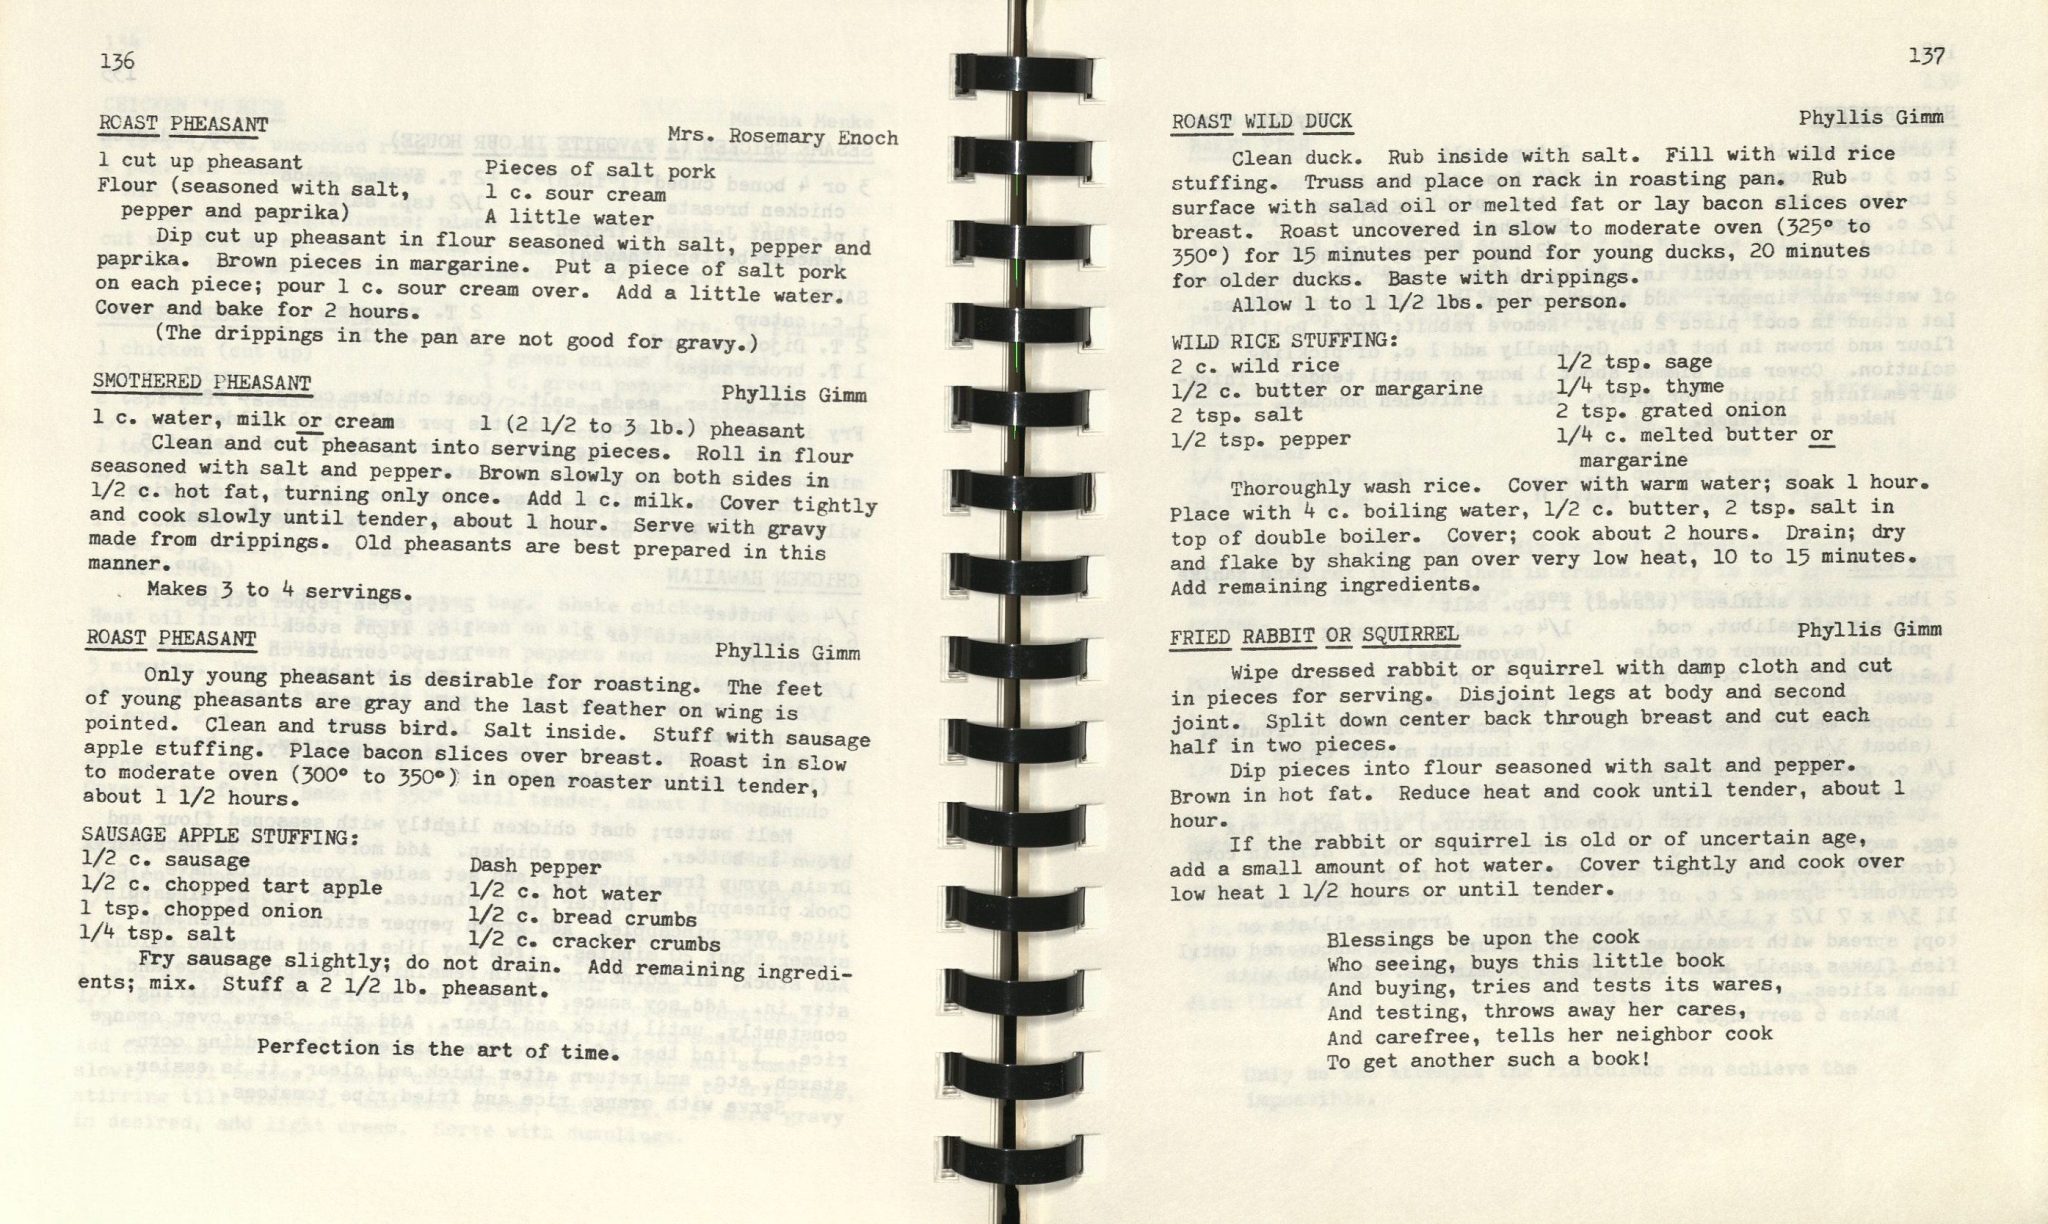 136
ROAST PHEASANT
Mrs. Rosemary Enoch
1 cut up pheasant
Flour (seasoned with salt,
pepper and paprika)
Pieces of salt pork
1 c. sour cream
A little water
Dip cut up pheasant in flour seasoned with salt, pepper and
paprika. Brown pieces in margarine. Put a piece of salt pork
on each piece; pour 1 c. sour cream over. Add a little water.
Cover and bake for 2 hours.
(The drippings in the pan are not good for gravy.)
SMOTHERED PHEASANT
Phyllis Gimm
1 c. water, milk or cream 1 (2 1/2 to 3 lb.) pheasant
Clean and cut pheasant into serving pieces. Roll in flour
seasoned with salt and pepper. Brown slowly on both sides in
1/2 c. hot fat, turning only once. Add 1 c. milk. Cover tightly
and cook slowly until tender, about 1 hour. Serve with gravy
made from drippings. Old pheasants are best prepared in this
manner.
Makes 3 to 4 servings.
ROAST PHEASANT
Phyllis Gimm
Only young pheasant is desirable for roasting. The feet
of young pheasants are gray and the last feather on wing is
pointed. Clean and truss bird. Salt inside. Stuff with sausage
apple stuffing. Place bacon slices over breast. Roast in slow
to moderate oven (300° to 350°) in open roaster until tender,
about 1 1/2 hours.
SAUSAGE APPLE STUFFING:
1/2 c. sausage
1/2 c. chopped tart apple
1 tsp. chopped onion
1/4 tsp. salt
Dash pepper
1/2 c. hot water
1/2 c. bread crumbs
1/2 c. cracker crumbs
Fry sausage slightly; do not drain. Add remaining ingredi-
ents; mix. Stuff a 2 1/2 lb. pheasant.
Perfection is the art of time.
137
ROAST WILD DUCK
Phyllis Gimm
Clean duck. Rub inside with salt. Fill with wild rice
stuffing. Truss and place on rack in roasting pan. Rub
surface with salad oil or melted fat or lay bacon slices over
breast. Roast uncovered in slow to moderate oven (325° to
350°) for 15 minutes per pound for young ducks, 20 minutes
for older ducks. Baste with drippings.
Allow 1 to 1 1/2 lbs. per person.
WILD RICE STUFFING:
2 c. wild rice
1/2 c. butter or margarine
2 tsp. salt
1/2 tsp. pepper
1/2 tsp. sage
1/4 tsp. thyme
2 tsp. grated onion
1/4 c. melted butter or
margarine
Thoroughly wash rice. Cover with warm water; soak 1 hour.
Place with 4 c. boiling water, 1/2 c. butter, 2 tsp. salt in
top of double boiler. Cover; cook about 2 hours. Drain; dry
and flake by shaking pan over very low heat, 10 to 15 minutes.
Add remaining ingredients.
FRIED RABBIT OR SQUIRREL
Phyllis Gimm
Wipe dressed rabbit or squirrel with damp cloth and cut
in pieces for serving. Disjoint legs at body and second
joint. Split down center back through breast and cut each
half in two pieces.
Dip pieces into flour seasoned with salt and pepper.
Brown in hot fat. Reduce heat and cook until tender, about 1
hour.
If the rabbit or squirrel is old or of uncertain age,
add a small amount of hot water. Cover tightly and cook over
low heat 1 1/2 hours or until tender.
Blessings be upon the cook
Who seeing, buys this little book
And buying, tries and tests its wares,
And testing, throws away her cares,
And carefree, tells her neighbor cook
To get another such a book!